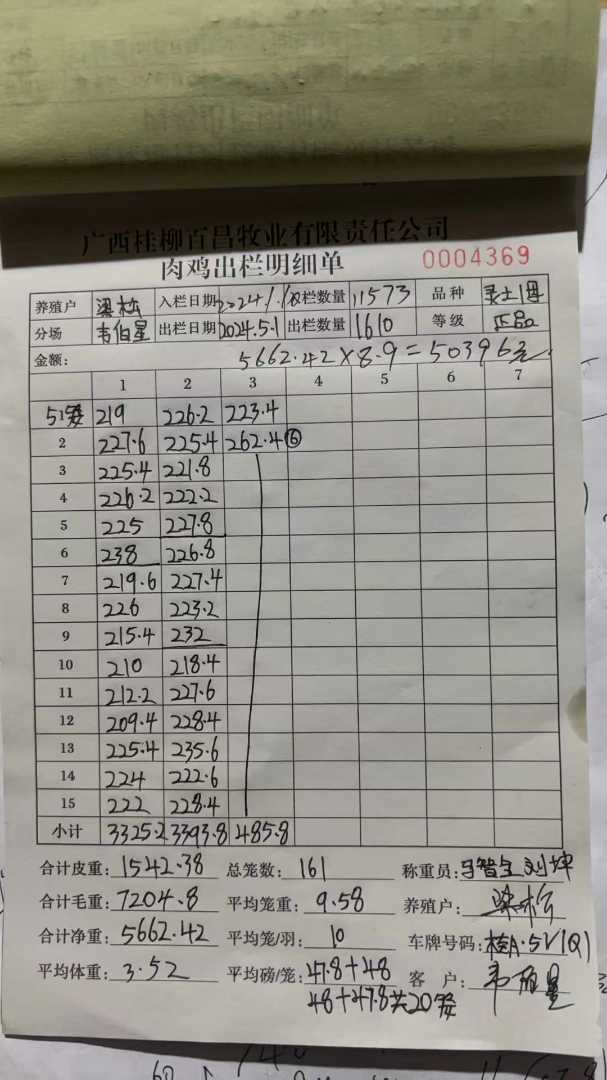 广西桂柳百昌牧业有限责任公司
肉鸡出栏明细单 0004369
养殖户 梁松 入栏日期 2024.1.1 入栏数量 11573 品种 灵土1号
分场 韦伯星 出栏日期 2024.5.1 出栏数量 1610 等级 正品
金额: 5662.42×8.9=50396元
1 2 3 4 5 6 7
219 226.2 223.4
2 227.6 225.4 262.4 ⑥
3 225.4 221.8
4 226.2 222.2
5 225 227.8
6 238 226.8
7 219.6 227.4
8 226 223.2
9 215.4 232
10 210 218.4
11 212.2 227.6
12 209.4 228.4
13 225.4 235.6
14 224 222.6
15 222 228.4
小计 3325.2 3393.8 485.8
合计皮重: 1542.38 总笼数: 161 称重员:
合计毛重: 7204.8 平均笼重: 9.58 养殖户: 梁松
合计净重: 5662.42 平均笼/羽: 10 车牌号码:
平均体重: 3.52 平均磅/笼: 47.8+48 客户: 韦伯星
48+47.8共20笼